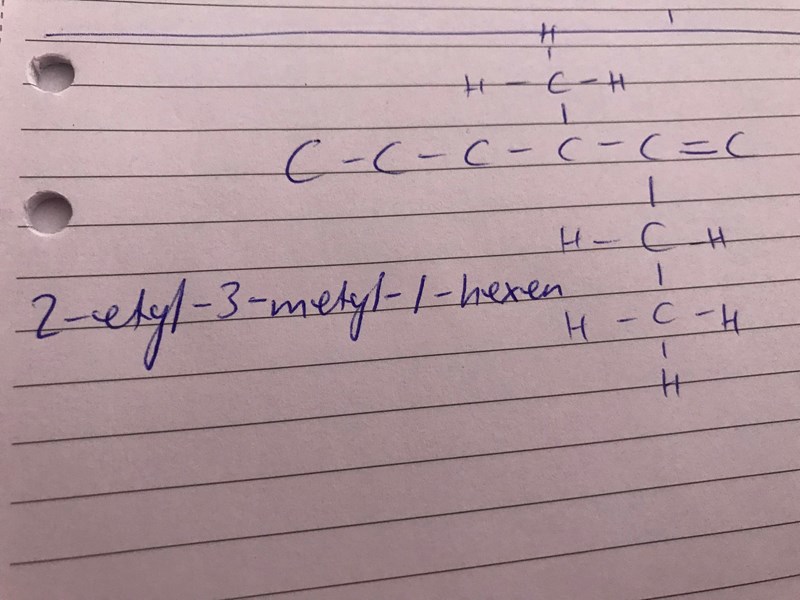 H
H - C - H
C - C - C - C - C = C
H - C - H
2-etyl-3-metyl-1-hexen
H - C - H
H